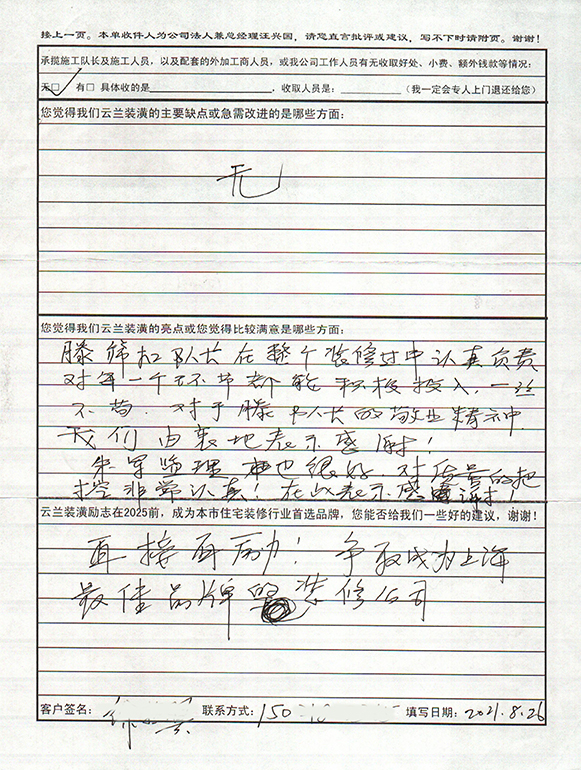 接上一页。本单收件人为公司法人兼总经理汪兴国，请您直言批评或建议，写不下时请附页。谢谢！
承揽施工队长及施工人员，以及配套的外加工商人员，或我公司工作人员有无收取好处、小费、额外钱款等情况：
无□ 有□ 具体收的是 ，收取人员是： （我一定会专人上门退还给您）
您觉得我们云兰装潢的主要缺点或急需改进的是哪些方面：
无
您觉得我们云兰装潢的亮点或您觉得比较满意是哪些方面：
滕 队长在整个装修过中认真负责
对每一个环节都能积极投入，一丝
不苟。对于滕队长的敬业精神，
我们由衷地表示感谢！
朱军监理 也很好，对质量的把
控非常认真！在此表示感谢！
云兰装潢励志在2025前，成为本市住宅装修行业首选品牌，您能否给我们一些好的建议，谢谢！
再接再励！争取成为上海
最佳品牌 装修公司
客户签名： 联系方式：150 填写日期：2021.8.26